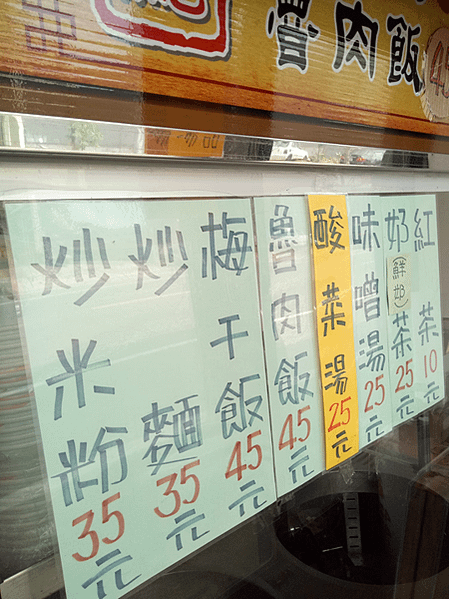 魯肉飯
45
紅茶10
奶茶25元
鮮奶
味噌湯25元
酸菜湯25元
魯肉飯45元
梅干飯45元
炒麵35元
炒米粉35元